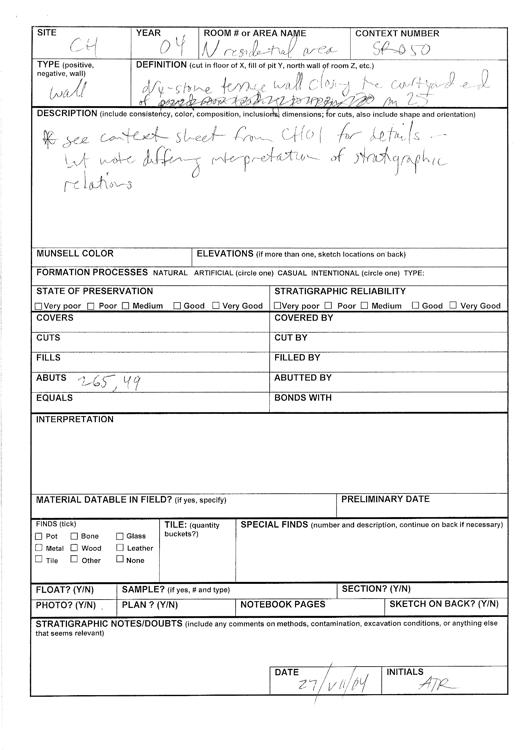 SITE YEAR ROOM # or AREA NAME CONTEXT NUMBER
CH 04 N residential area SR050
TYPE (positive, negative, wall) DEFINITION (cut in floor of X, fill of pit Y, north wall of room Z, etc.)
wall dry-stone terrace wall closing the courtyard end
of rm 25
DESCRIPTION (include consistency, color, composition, inclusions, dimensions; for cuts, also include shape and orientation)
* see context sheet from CH01 for details –
but note differing interpretation of stratigraphic
relations
MUNSELL COLOR ELEVATIONS (if more than one, sketch locations on back)
FORMATION PROCESSES NATURAL ARTIFICIAL (circle one) CASUAL INTENTIONAL (circle one) TYPE:
STATE OF PRESERVATION STRATIGRAPHIC RELIABILITY
Very poor Poor Medium Good Very Good Very poor Poor Medium Good Very Good
COVERS COVERED BY
CUTS CUT BY
FILLS FILLED BY
ABUTS 265, 49 ABUTTED BY
EQUALS BONDS WITH
INTERPRETATION
MATERIAL DATABLE IN FIELD? (if yes, specify) PRELIMINARY DATE
FINDS (tick) TILE: (quantity buckets?) SPECIAL FINDS (number and description, continue on back if necessary)
Pot Bone Glass
Metal Wood Leather
Tile Other None
FLOAT? (Y/N) SAMPLE? (if yes, # and type) SECTION? (Y/N)
PHOTO? (Y/N) PLAN ? (Y/N) NOTEBOOK PAGES SKETCH ON BACK? (Y/N)
STRATIGRAPHIC NOTES/DOUBTS (include any comments on methods, contamination, excavation conditions, or anything else
that seems relevant)
DATE INITIALS
27/VII/04 ATR